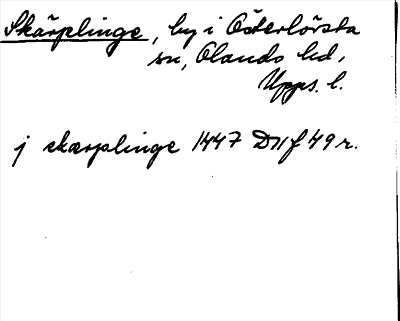 Skärplinge, by i Österlövsta
sn, Olands hd,
Upps. l.
j skærplinge 1447 Dnf 49 r.